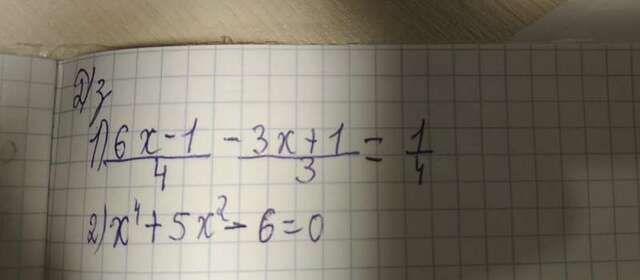 Д/з
1) 6x-1/4 - 3x+1/3 = 1/4
2) x⁴+5x²-6=0